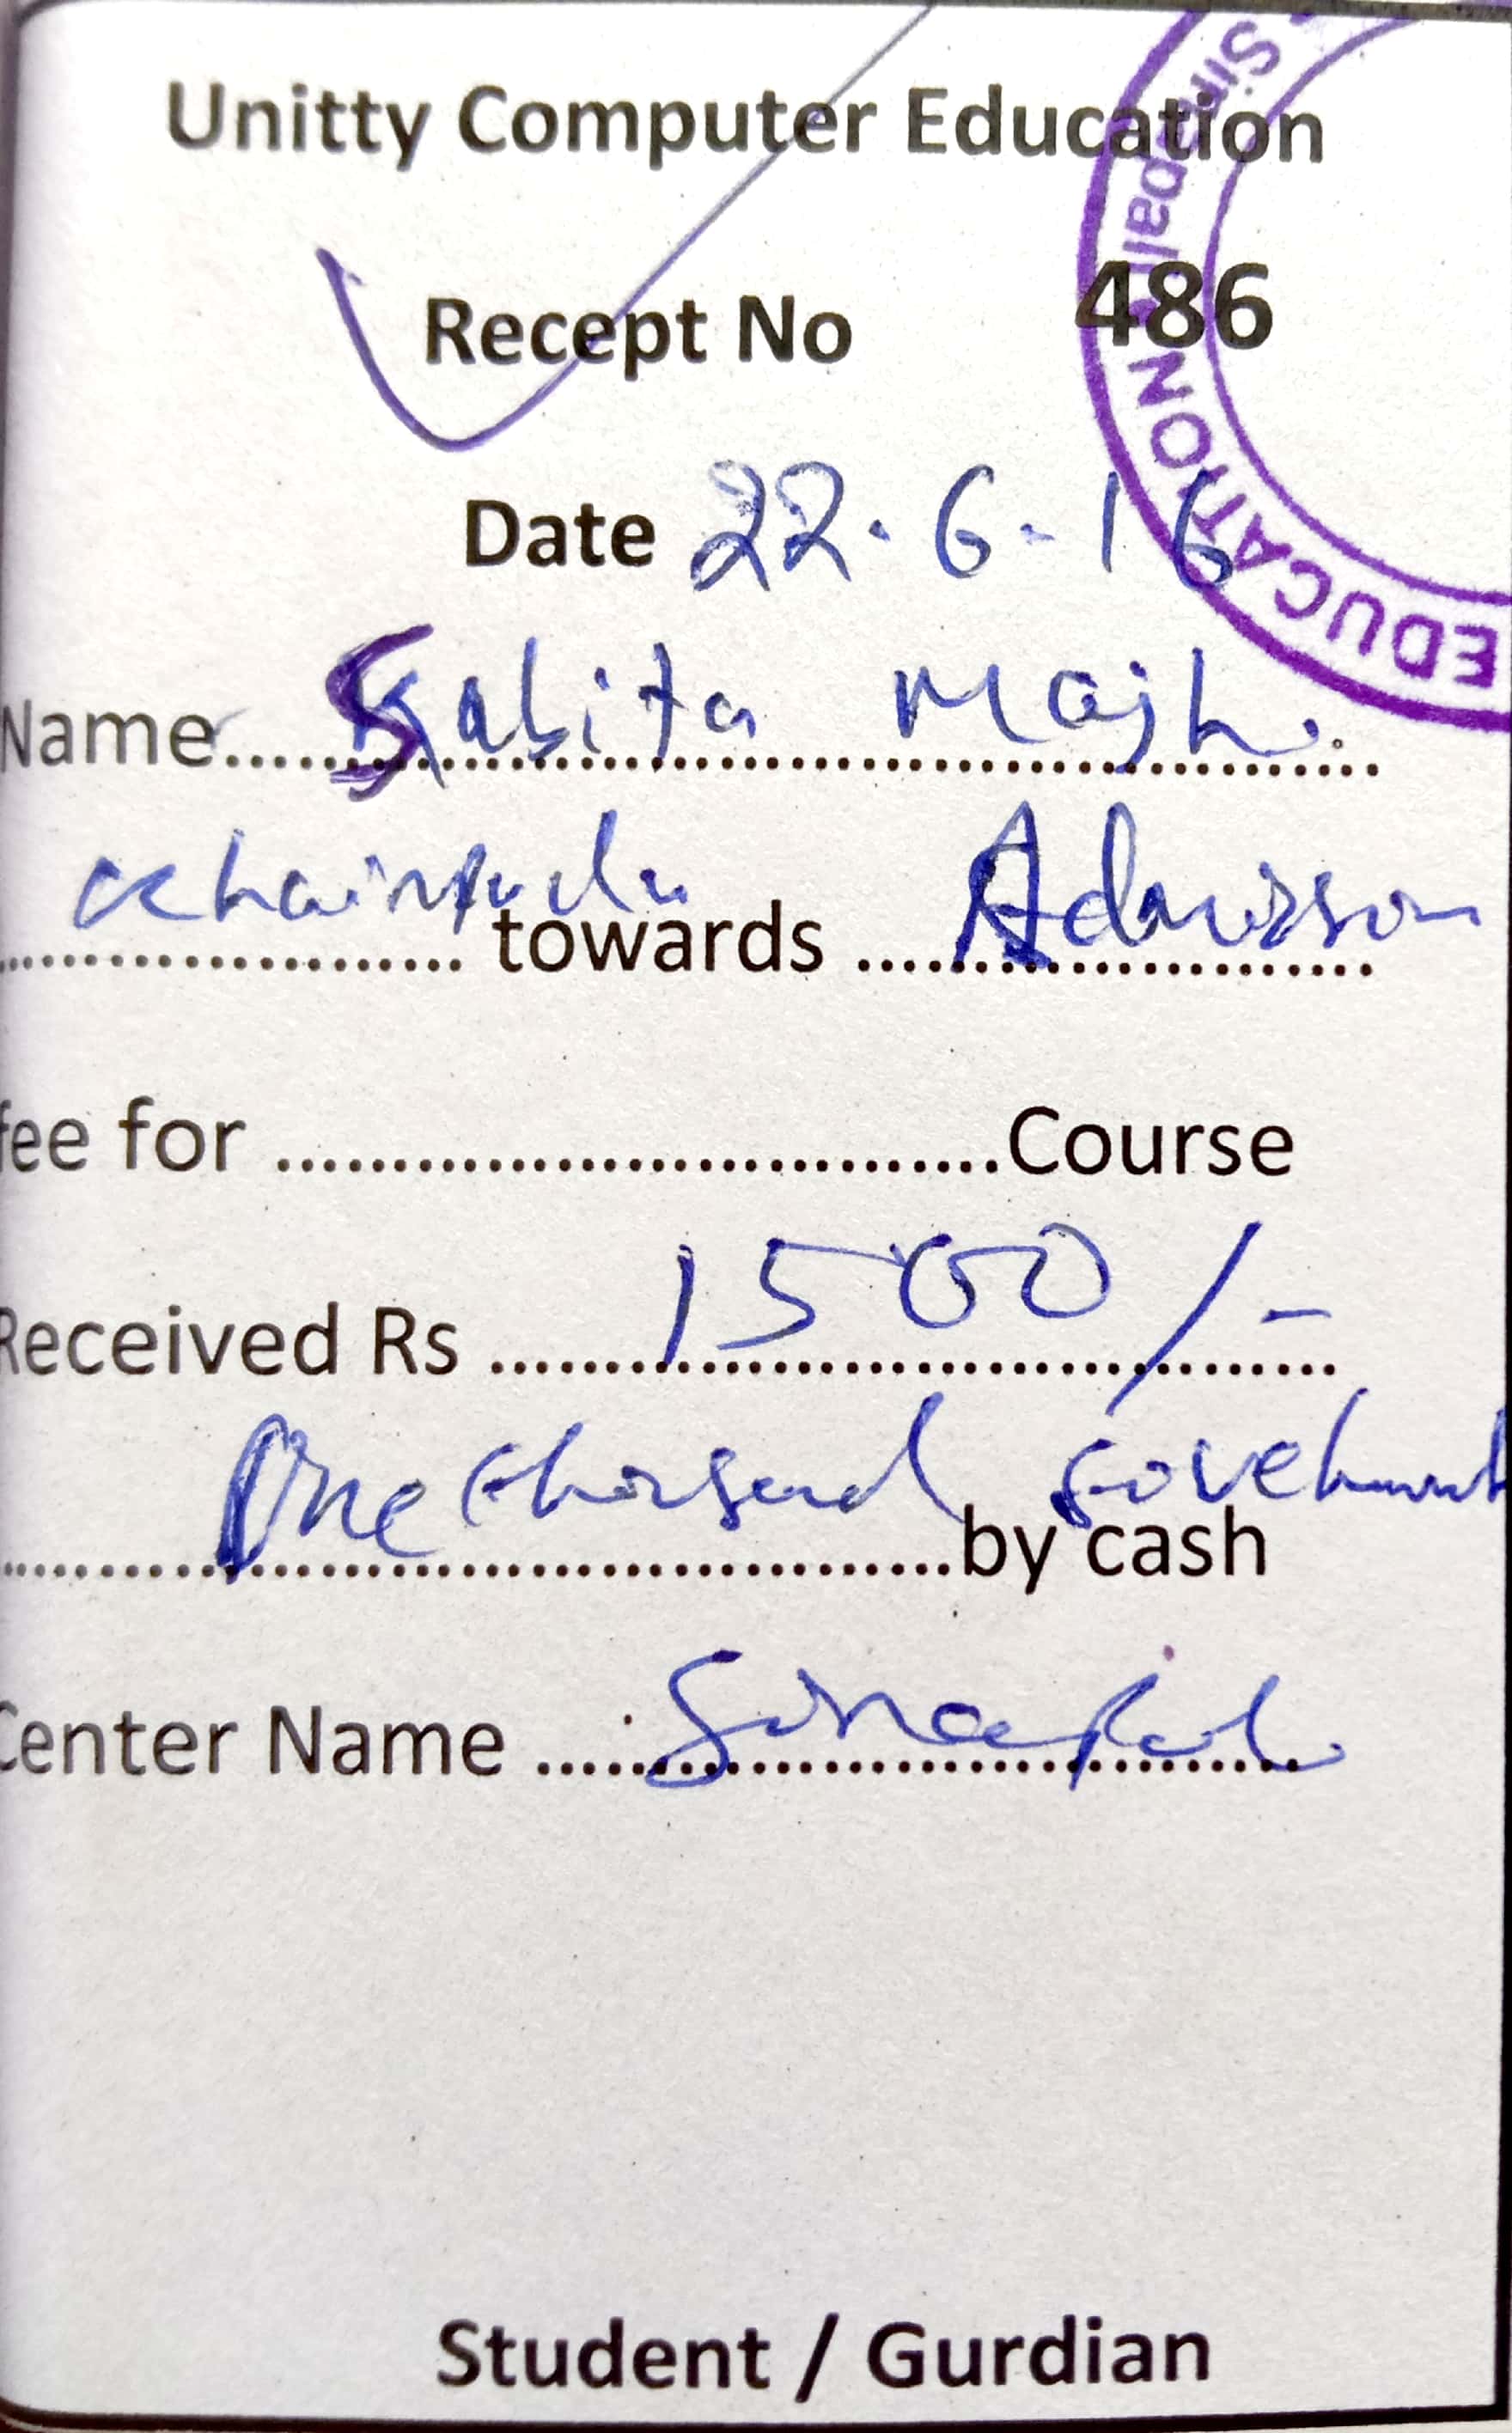 Unitty Computer Education
Recept No 486
Date 22.6.16
Name Sabita Majhi
towards Admission
fee for Course
Received Rs 1500/-
One thousand
by cash
Center Name Sinapali
Student / Gurdian
Sinapali
EDUCATION